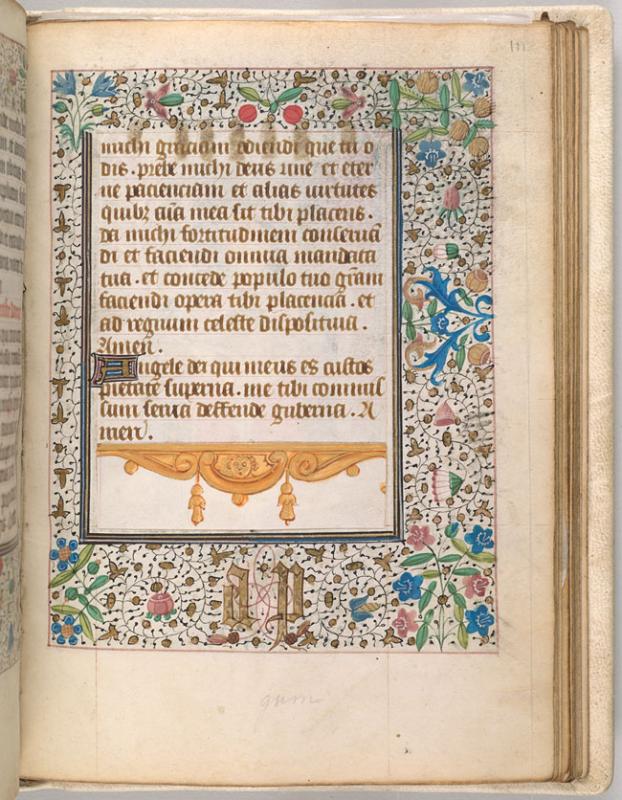 michi graciam odiendi que tu o
dis. prebe michi deus viue et eter
ne pacienciam et alias virtutes
quibz aīa mea sit tibi placens.
da michi fortitudinem conseruā
di et faciendi omnia mandata
tua. et concede populo tuo grām
faciendi opera tibi placenciā. et
ad regnum celeste dispositiua.
Amen.
Angele dei qui meus es custos
pietate superna. me tibi commis
sum serua deffende guberna. A
men.